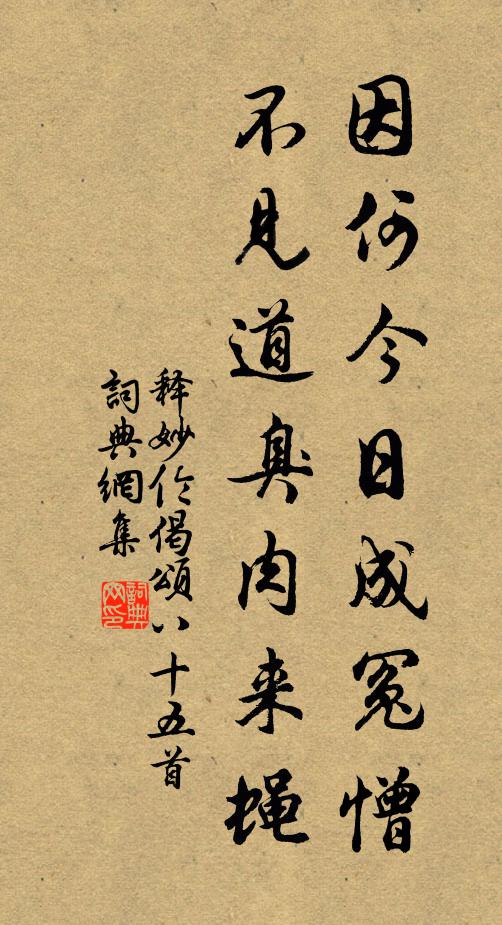 因何今日成冤憎
不见道臭肉来蝇
释妙伦偈颂八十五首
詞典網集
詞典网印